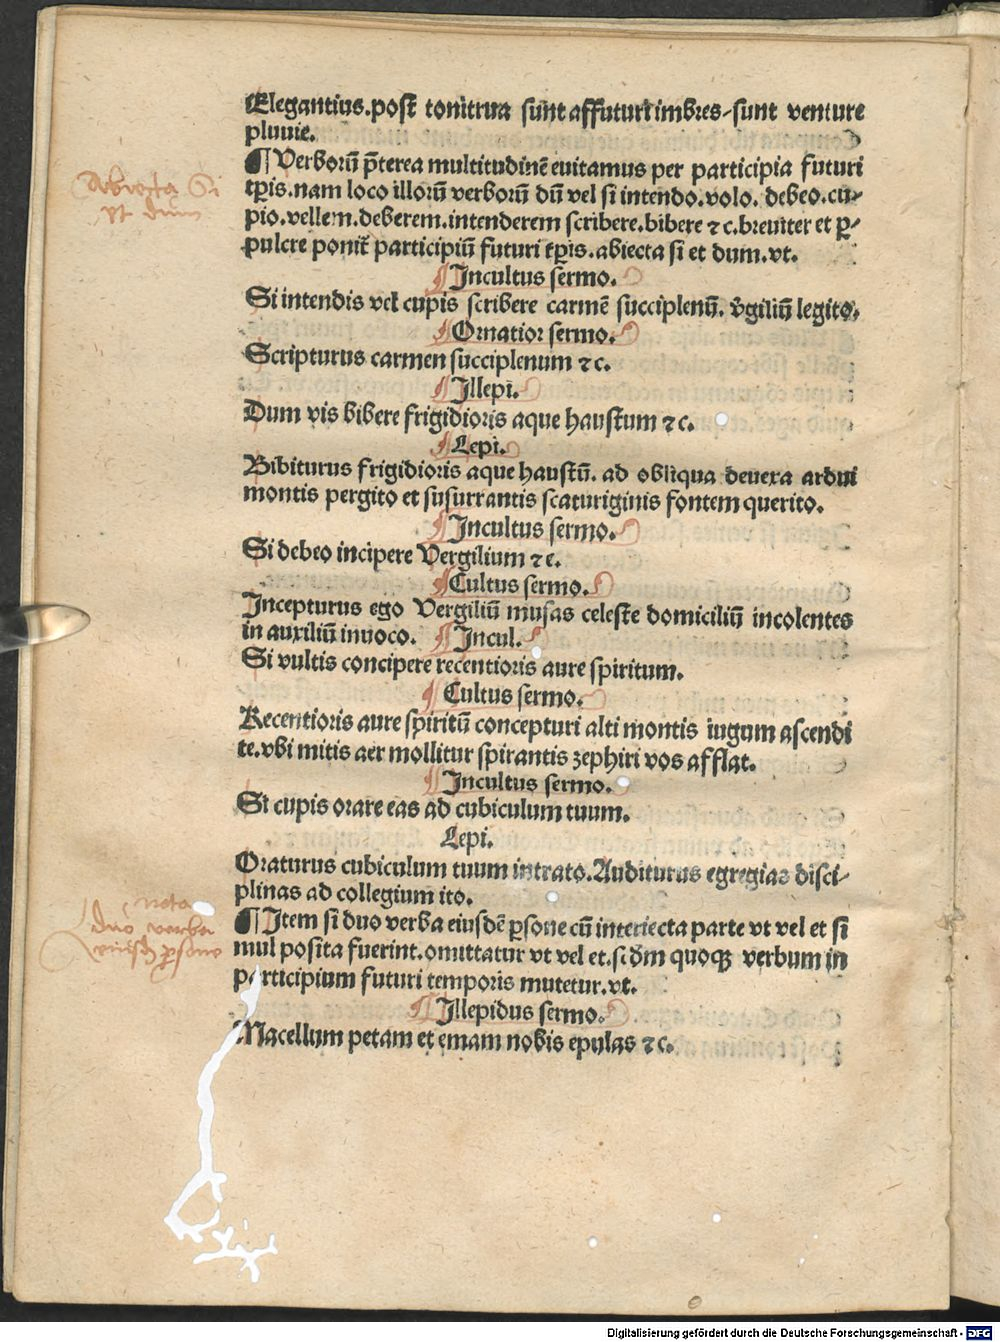 Elegantius.post tonitrua sunt affuturi imbres-sunt venture
pluuie.
¶ Verborū p̄terea multitudinē euitamus per participia futuri
tp̄is.nam loco illorū verborū dū vel si intendo.volo. debeo.cu-
pio.vellem.deberem.intenderem scribere.bibere ⁊ c.breuiter et ꝑ-
pulcre ponit̄ participiū futuri tp̄is.abiecta si et dum.vt.
¶ Incultus sermo.
Si intendis vel cupis scribere carmē succiplenū. v̄giliū legito.
¶ Ornatior sermo.
Scripturus carmen succiplenum ⁊ c.
¶ Illepi.
Dum vis bibere frigidioris aque haustum ⁊ c.
¶ Lepi.
Bibiturus frigidioris aque haustū. ad obliqua deuexa ardui
montis pergito et susurrantis scaturiginis fontem querito.
¶ Incultus sermo.
Si debeo incipere Vergilium ⁊ c.
¶ Cultus sermo.
Incepturus ego Vergiliū musas celeste domiciliū incolentes
in auxiliū inuoco. ¶ Incul.
Si vultis concipere recentioris aure spiritum.
¶ Cultus sermo.
Recentioris aure spiritū concepturi alti montis iugum ascendi
te.vbi mitis aer mollitur spirantis zephiri vos afflat.
¶ Incultus sermo.
Si cupis orare eas ad cubiculum tuum.
Lepi.
Oraturus cubiculum tuum intrato.Auditurus egregias disci-
plinas ad collegium ito.
¶ Item si duo verba eiusdē ꝑsone cū interiecta parte vt vel et si
mul posita fuerint.omittatur vt vel et.scd̄m quoqꝫ verbum in
participium futuri temporis mutetur.vt.
¶ Illepidus sermo.
Macellum petam et emam nobis epulas ⁊ c.
Abiecta Si
et dum
nota
duo verba
eiusdē ꝑsone
Digitalisierung gefördert durch die Deutsche Forschungsgemeinschaft - DFG